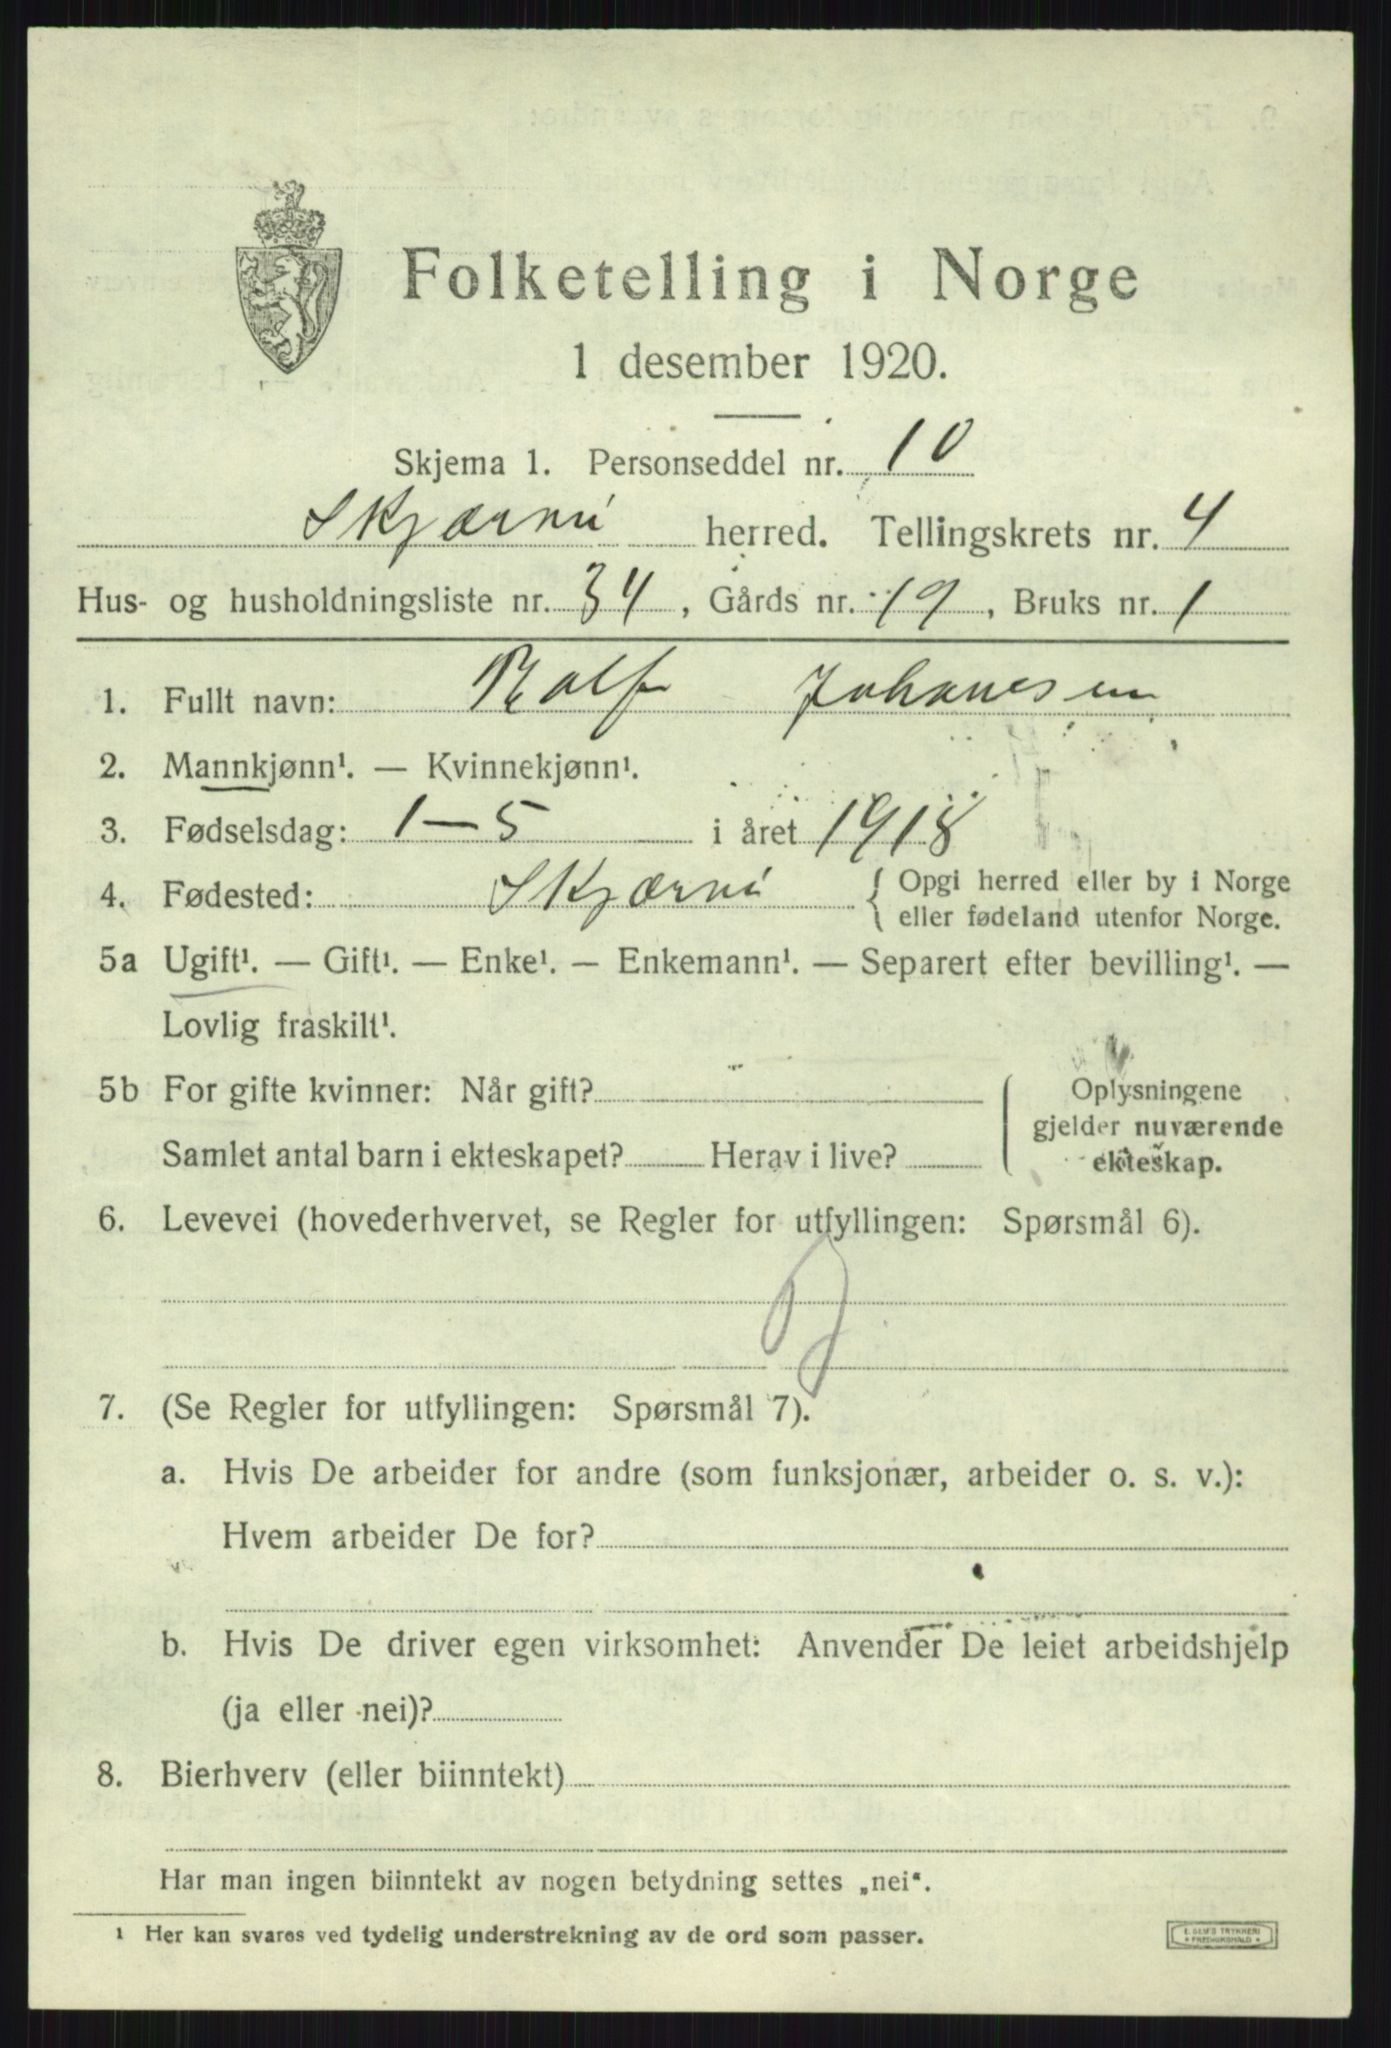 Folketelling i Norge
1 desember 1920.
Skjema 1. Personseddel nr. 10
Skjærvø herred. Tellingskrets nr. 4
Hus- og husholdningsliste nr. 34, Gårds nr. 19, Bruks nr. 1
1. Fullt navn: Rolf Johanesen
2. Mannkjønn¹. — Kvinnekjønn¹.
3. Fødselsdag: 1–5 i året 1918
4. Fødested: Skjærvø { Opgi herred eller by i Norge
eller fødeland utenfor Norge.
5a Ugift¹. — Gift¹. — Enke¹. — Enkemann¹. — Separert efter bevilling¹. —
Lovlig fraskilt¹.
5b For gifte kvinner: Når gift?
Samlet antal barn i ekteskapet? Herav i live?
Oplysningene
gjelder nuværende
ekteskap.
6. Levevei (hovederhvervet, se Regler for utfyllingen: Spørsmål 6).
7. (Se Regler for utfyllingen: Spørsmål 7).
a. Hvis De arbeider for andre (som funksjonær, arbeider o. s. v.):
Hvem arbeider De for?
b. Hvis De driver egen virksomhet: Anvender De leiet arbeidshjelp
(ja eller nei)?
8. Bierhverv (eller biinntekt)
Har man ingen biinntekt av nogen betydning settes „nei“.
¹ Her kan svares ved tydelig understrekning av de ord som passer.